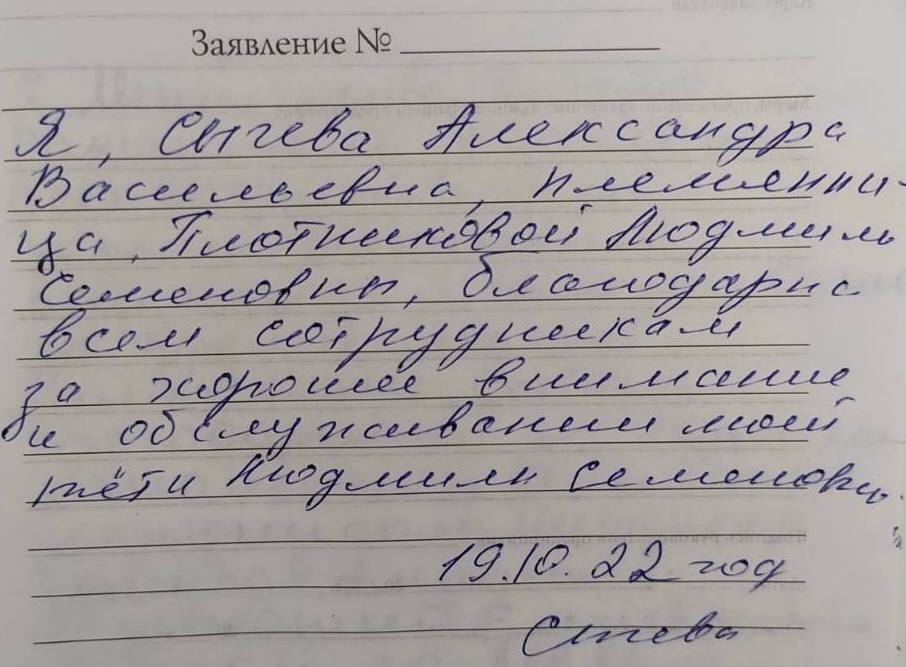 Заявление № 
Я, Сычева Александра
Васильевна, племянни-
ца, Плотниковой Людмилы
Семеновны, благодарна
всем сотрудникам
за хорошее внимание
и обслуживании моей
тёти Людмилы Семеновны.
19.10.22 год
Сычева